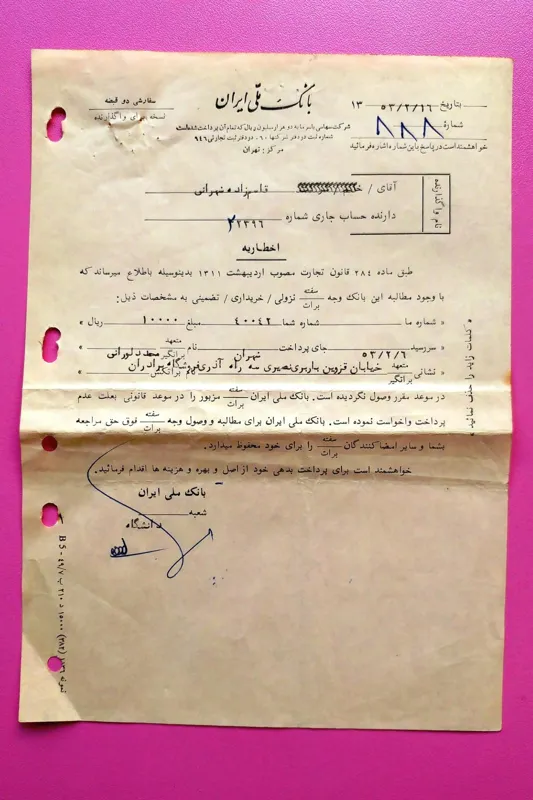 سفارشی دو قبضه
نسخه برای واگذارنده
بانک ملی ایران
شرکت سهامی با سرمایه دو هزار میلیون ریال که تمام آن پرداخت شده است
شماره ثبت دو دفتر شرکتها ۶۰. دو دفتر ثبت تجارتی ۹۴۶
مرکز: تهران
بتاریخ ۵۳/۲/۱۶ ۱۳
شماره ۸۸۸
خواهشمند است در پاسخ باین شماره اشاره فرمائید
نام واگذارنده
آقای / قاسم زاده تهرانی
دارنده حساب جاری شماره ۲۲۳۹۶
اخطاریه
طبق ماده ۲۸۴ قانون تجارت مصوب اردیبهشت ۱۳۱۱ بدینوسیله باطلاع میرساند که
با وجود مطالبه این بانک وجه سفته برات نزولی / خریداری / تضمینی به مشخصات ذیل:
« شماره ما شماره شما ۴۰۰۴۲ مبلغ ۱۰۰۰۰ ریال »
« سررسید ۵۳/۲/۶ جای پرداخت تهران نام متعهد براتگیر محمد لورانی »
« نشانی متعهد براتگیر خیابان قزوین سه راه آذری فروشگاه برادران نام براتکش »
در موعد مقرر وصول نگردیده است. بانک ملی ایران سفته برات مزبور را در موعد قانونی بعلت عدم
پرداخت واخواست نموده است. بانک ملی ایران برای مطالبه و وصول وجه سفته برات فوق حق مراجعه
بشما و سایر امضا کنندگان سفته برات را برای خود محفوظ میدارد.
خواهشمند است برای پرداخت بدهی خود از اصل و بهره و هزینه ها اقدام فرمائید.
بانک ملی ایران
شعبه
دانشگاه
« کلمات زاید را حذف نمائید »